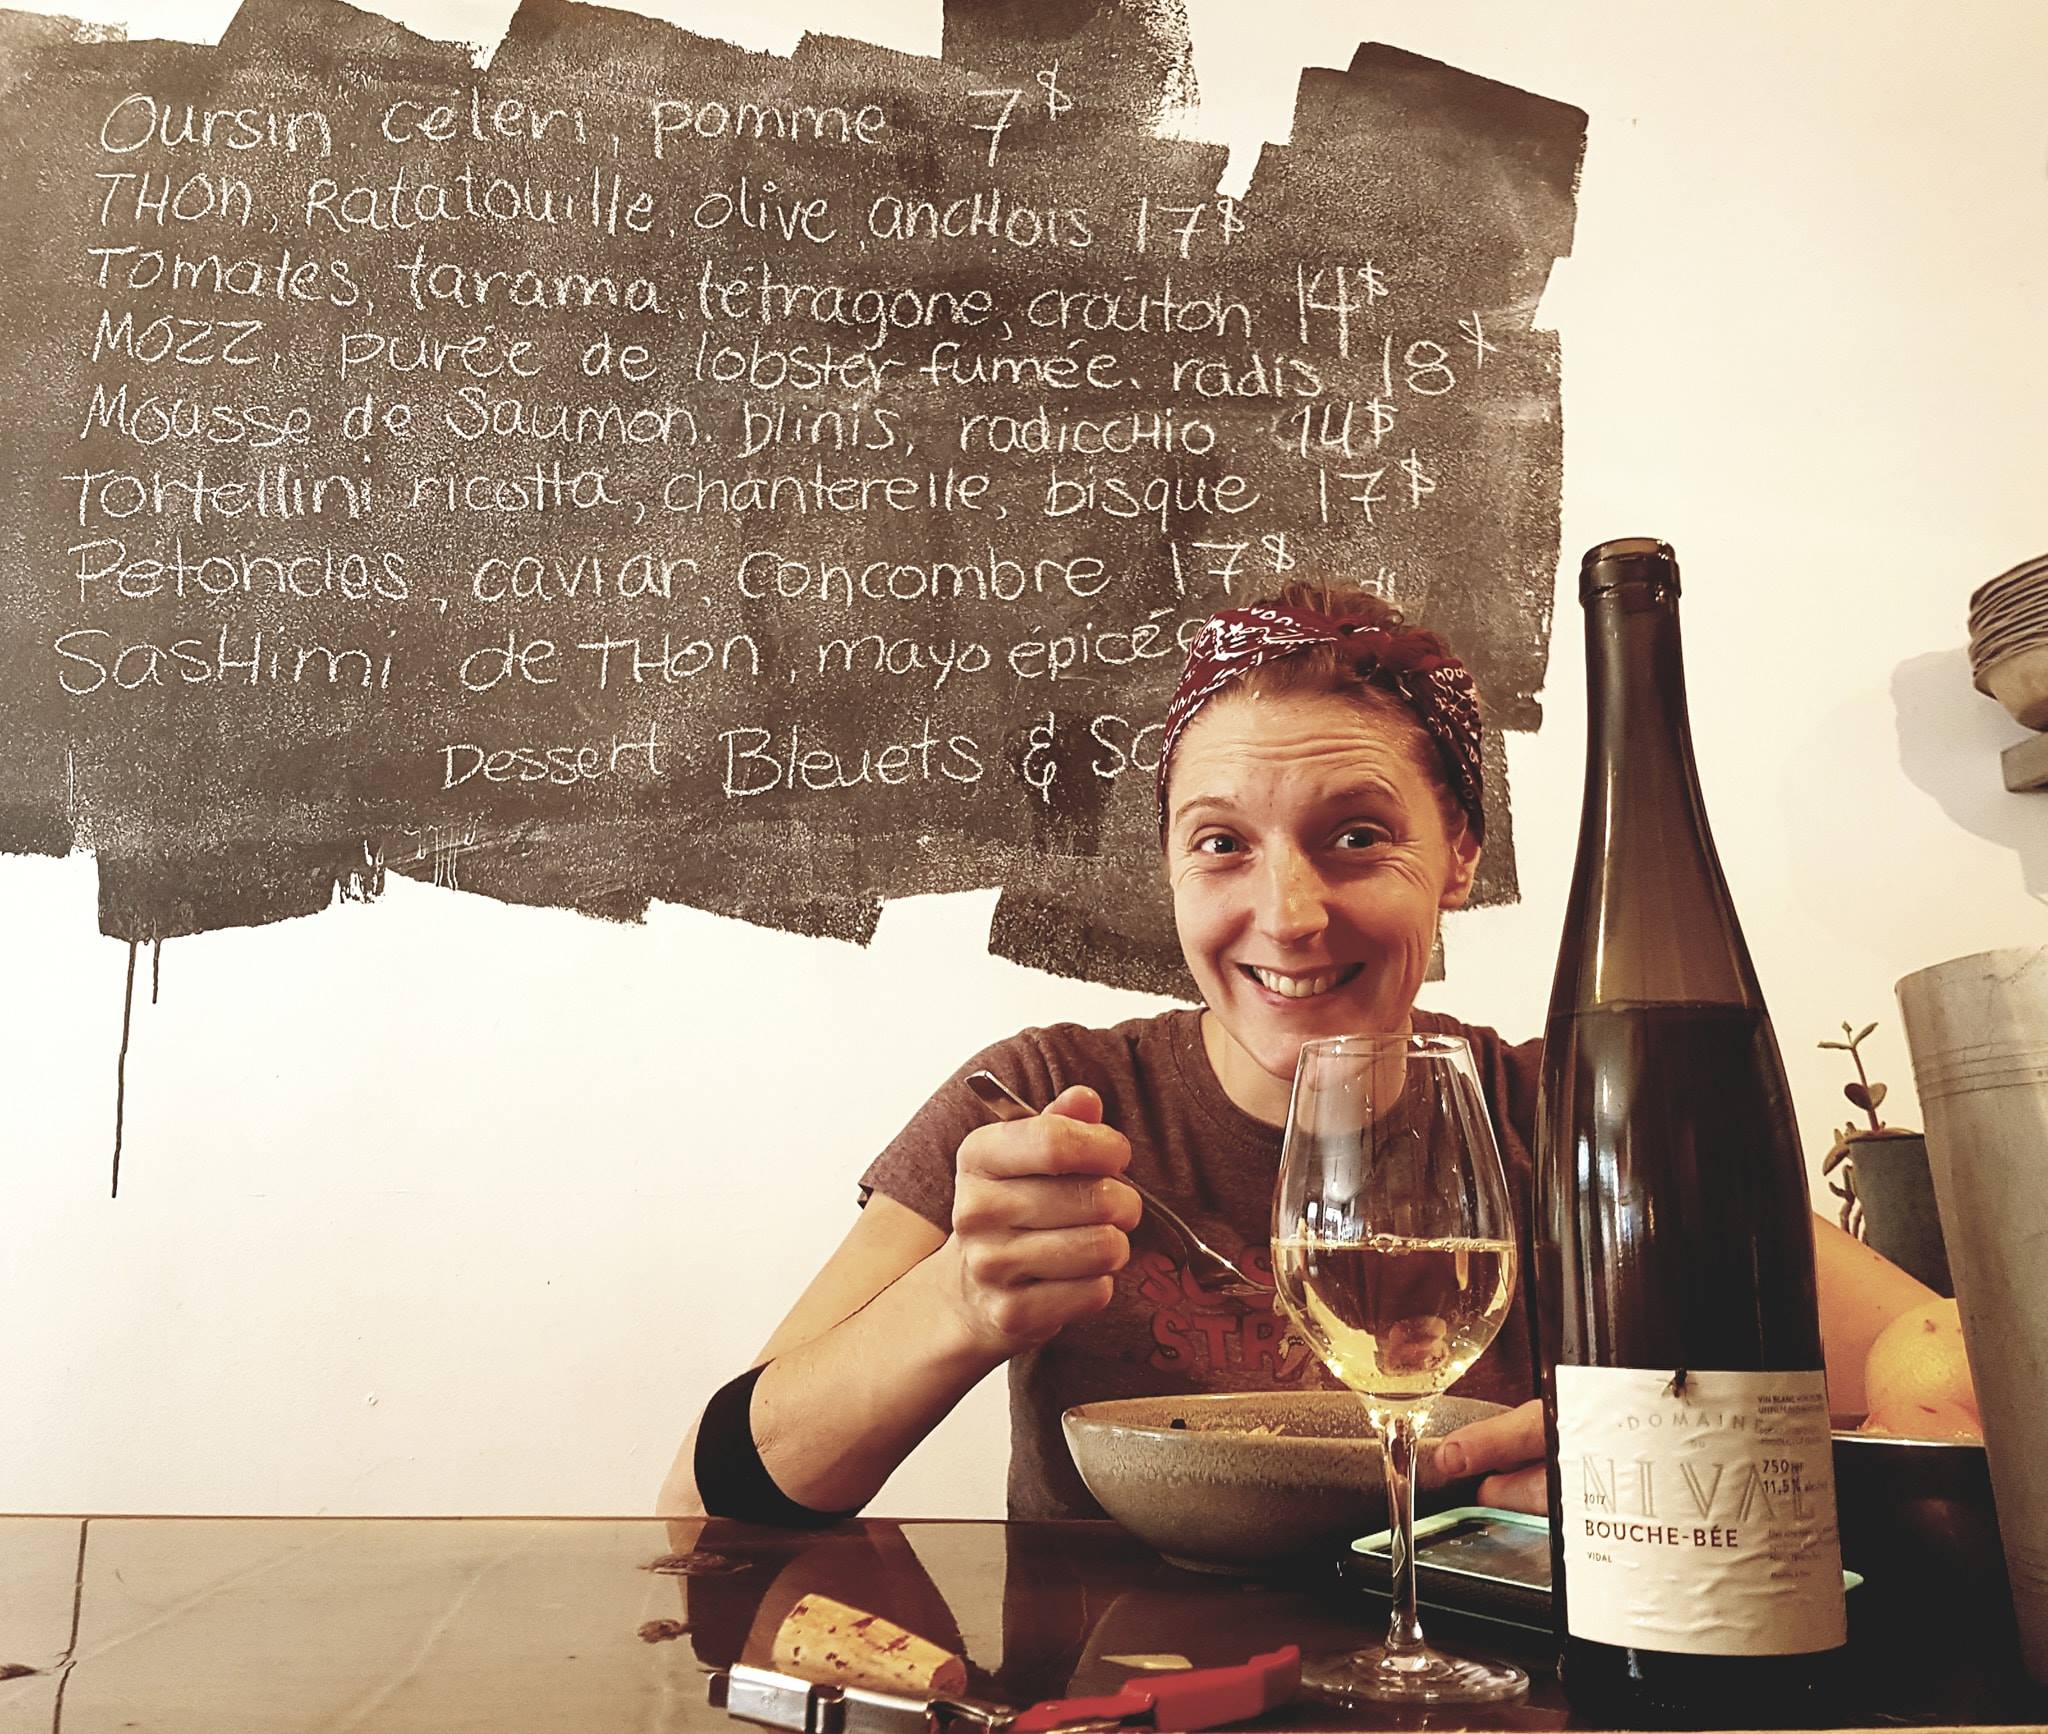 Oursin, céleri, pomme 7$
THon, Ratatouille, olive, ancHois 17$
Tomates, tarama, tétragone, croûton 14$
Mozz, purée de lobster fumée, radis 18$
Mousse de Saumon, blinis, radiccHio 14$
Tortellini ricotta, chanterelle, bisque 17$
Petoncles, caviar, concombre 17$
SasHimi de THon, mayo épicée
Dessert Bleuets &
DOMAINE
DU
NIVAL
750 ml
11,5%
2017
BOUCHE-BÉE
VIDAL